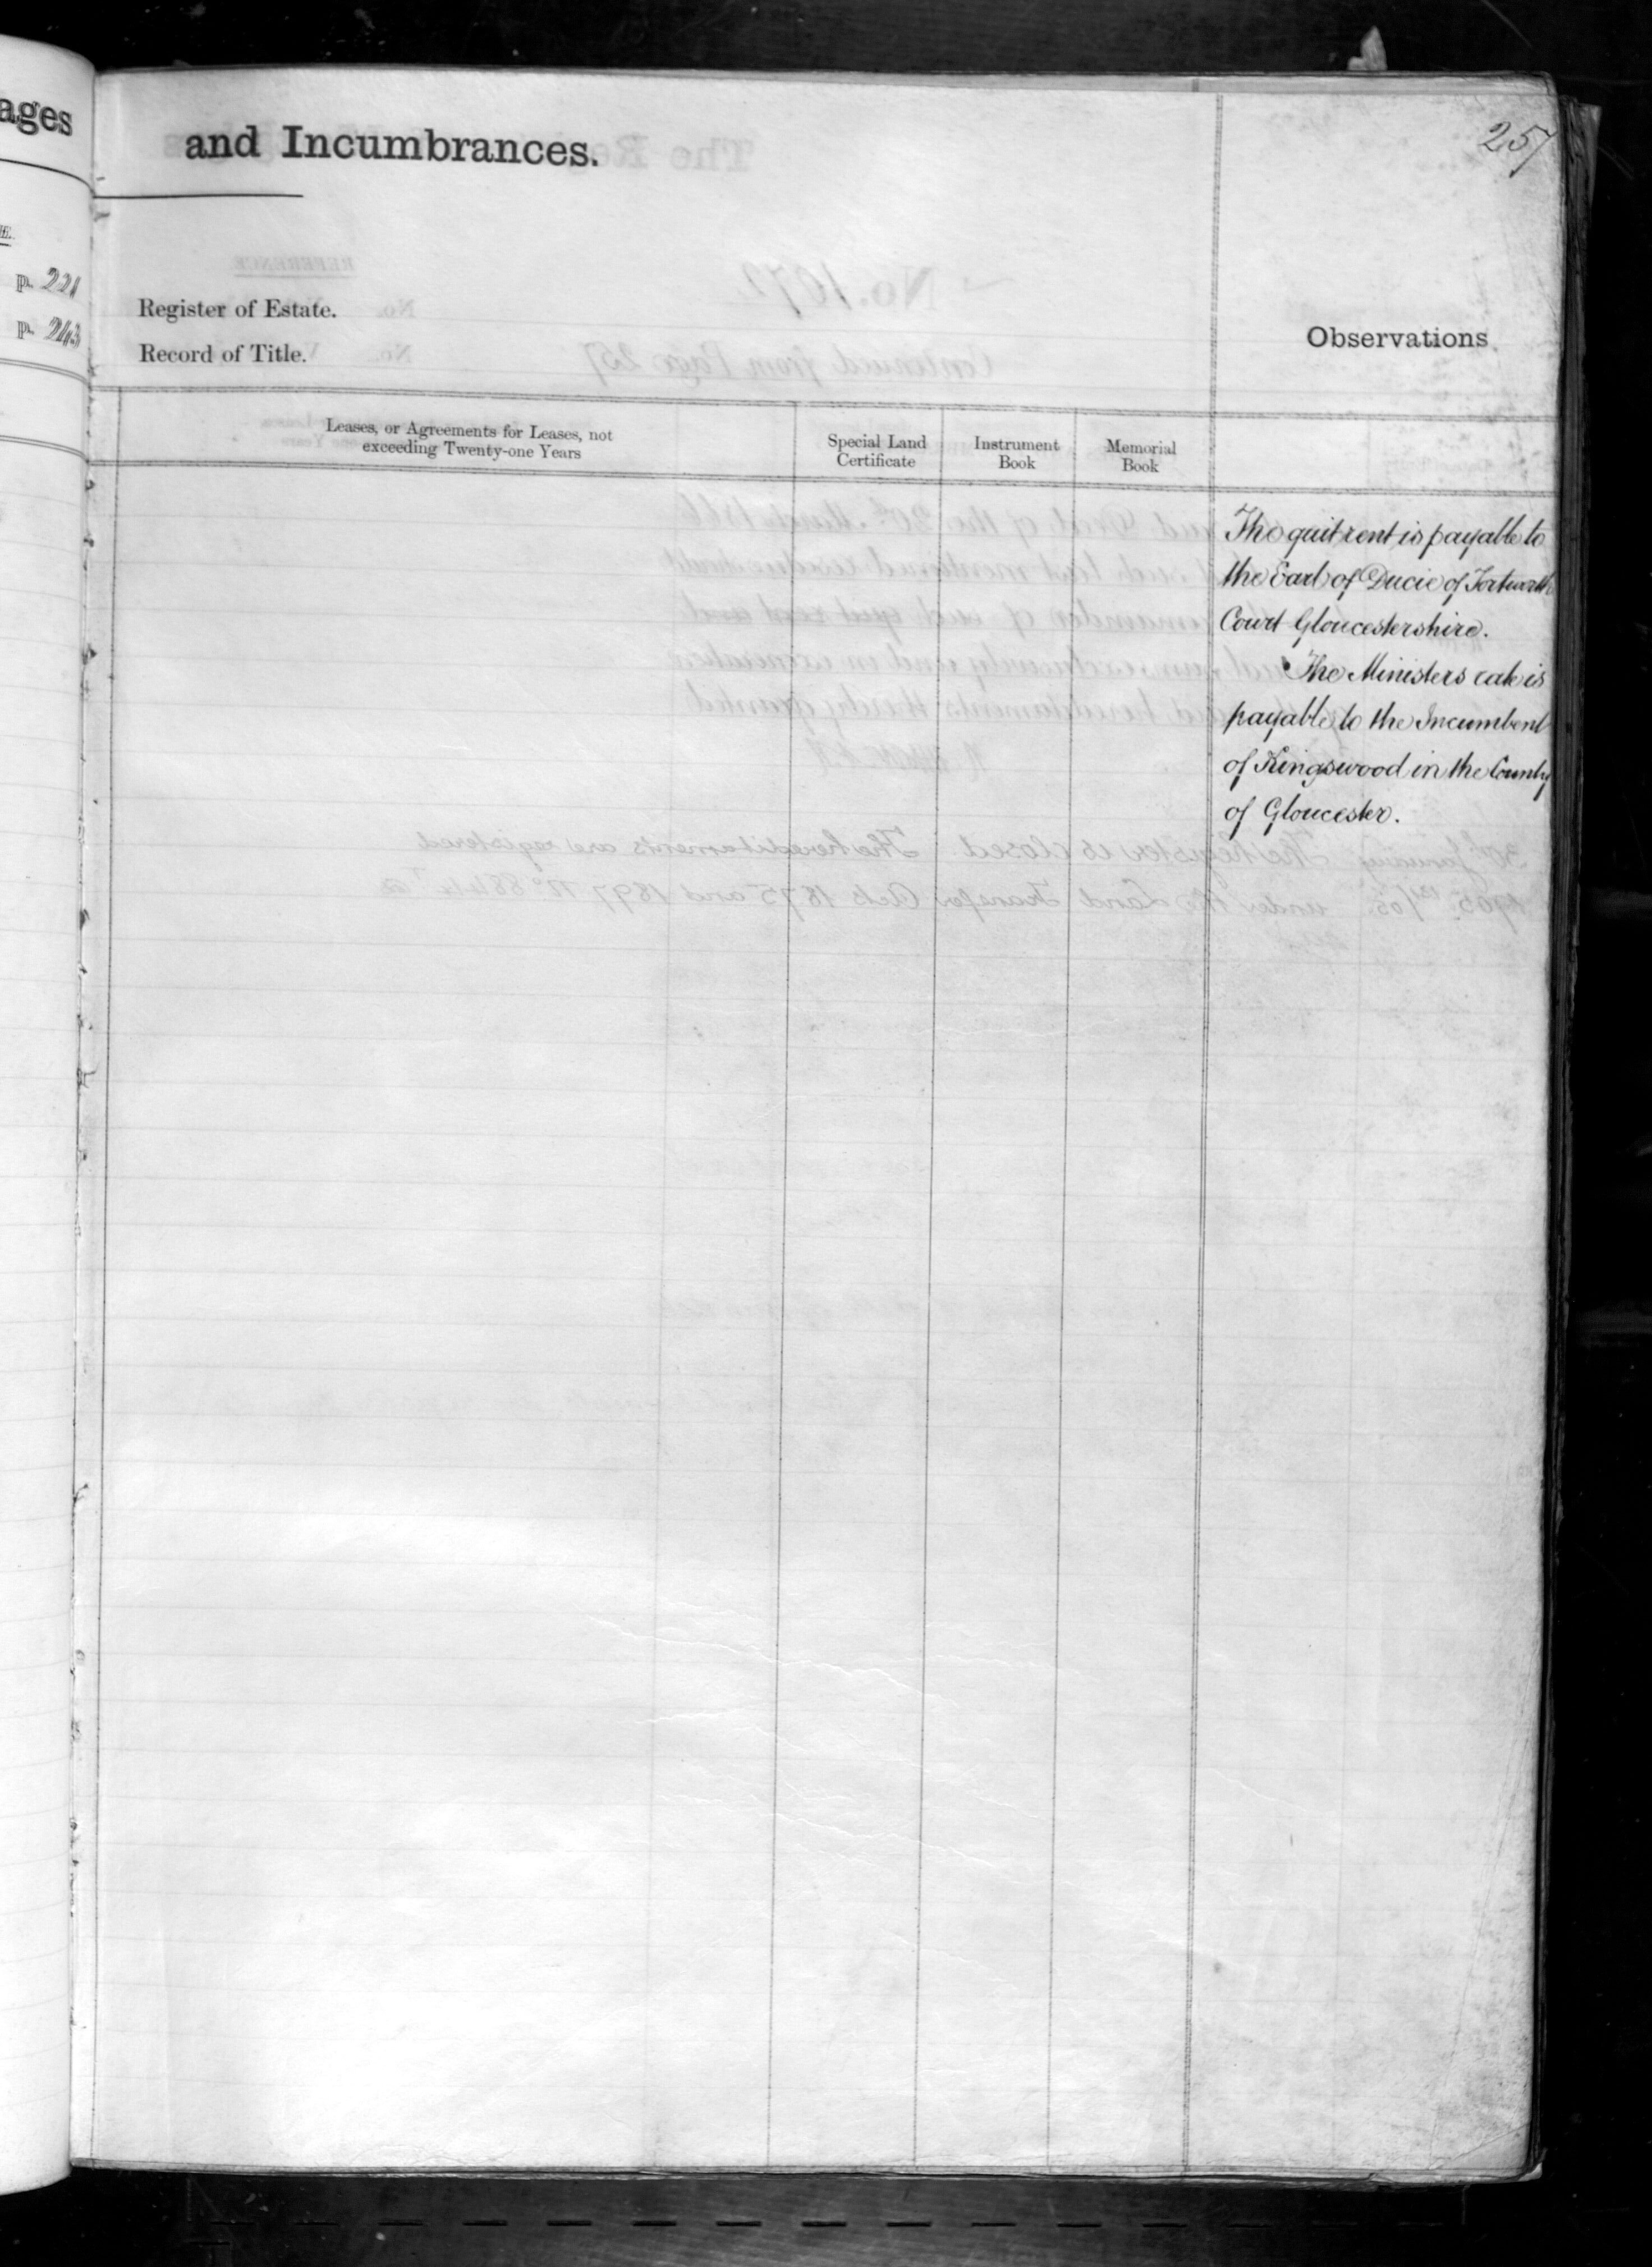 ages
p. 221
p. 243
257
and Incumbrances.
Register of Estate.
Record of Title.
Observations
Leases, or Agreements for Leases, not
exceeding Twenty-one Years
Special Land
Certificate
Instrument
Book
Memorial
Book
The quit rent is payable to
the Earl of Ducie of Tortworth
Court Gloucestershire.
The Ministers rate is
payable to the Incumbent
of Kingswood in the County
of Gloucester.